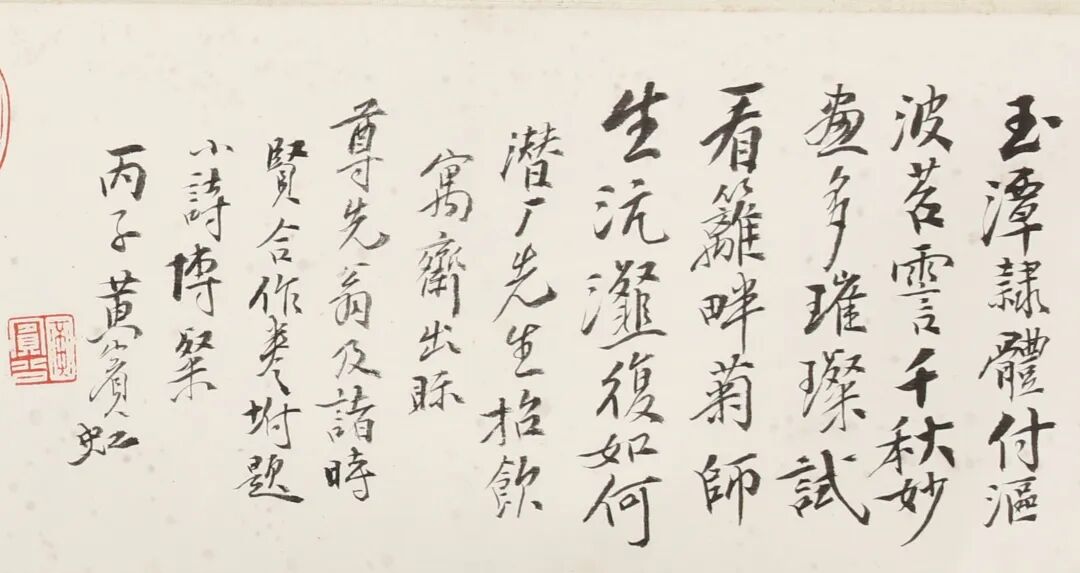 玉潭隸體付漚
波苕霅千秋妙
畫多璀璨試
看籬畔菊師
生沆瀣復如何
潛厂先生招飲
寓齋出眎
尊先翁及諸時
賢合作卷坿題
小詩博粲
丙子黃賓虹